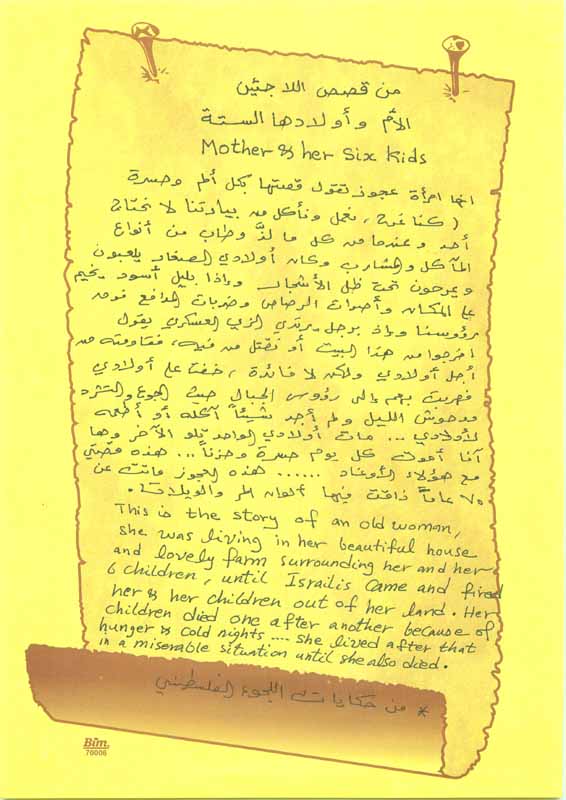 من قصص اللاجئين
الأم وأولادها الستة
Mother & her Six Kids
انها امرأة عجوز تقول قصتها بكل ألم وحسرة
( كنا نفرح، نعمل ونأكل من بيادرنا لا نحتاج
أحد وعندما من كل ما لذَّ وطاب من أنواع
المآكل والمشارب وكان أولادي الصغار يلعبون
ويمرحون تحت ظل الأشجار وإذا بليل أسود يخيم
على المكان وأصوات الرصاص وضربات المدافع فوق
رؤوسنا وإذ برجل يرتدي الزي العسكري يقول
اخرجوا من هذا البيت أو نقتل من فيه، فقاومته من
أجل أولادي ولكن لا فائدة، خفت على أولادي
فهربت بهم إلى رؤوس الجبال حيث الجوع والتشرد
ووحوش الليل ولم أجد شيئاً آكله أو أطعمه
لأولادي ... مات أولادي الواحد تلو الآخر وها
أنا أموت كل يوم حسرة وحزناً ... هذه قصتي
مع هؤلاء الأوغاد ...... هذه العجوز ماتت عن
عاماً ذاقت فيها ألوان المر والويلات.
This is the story of an old woman,
she was living in her beautiful house
and lovely farm surrounding her and her
6 children, until Israilis came and fired
her & her children out of her land. Her
children died one after another because of
hunger & cold nights .... she lived after that
in a miserable situation until she also died.
* من حكايات اللجوء الفلسطيني
Bim
76006